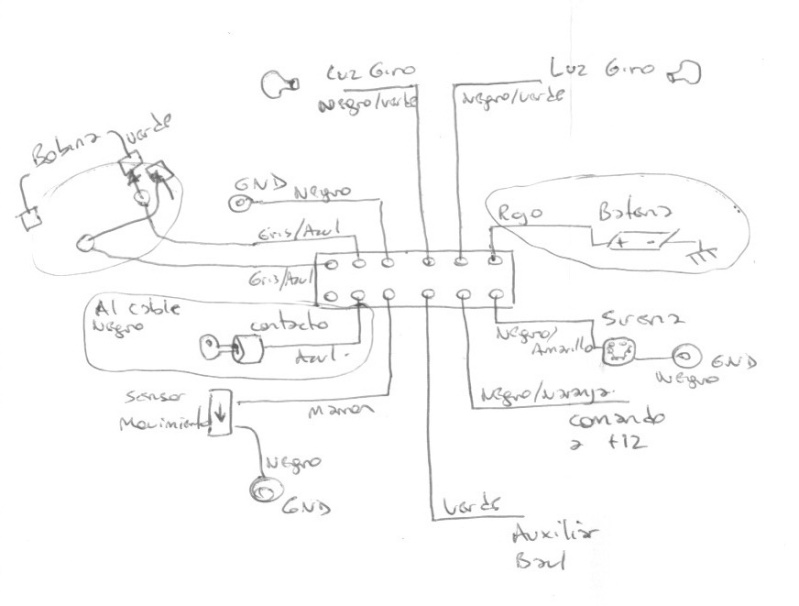 Luz Giro
Negro/verde
Luz Giro
Negro/verde
Bobina
verde
GND
Negro
Rojo
Bateria
+ -
Gris/Azul
Gris/Azul
Al cable
Negro
contacto
Azul
Negro/
Amarillo
Sirena
GND
Negro
Sensor
Movimiento
Marron
Negro/Naranja
comando
a +12
Negro
GND
Verde
Auxiliar
Baul